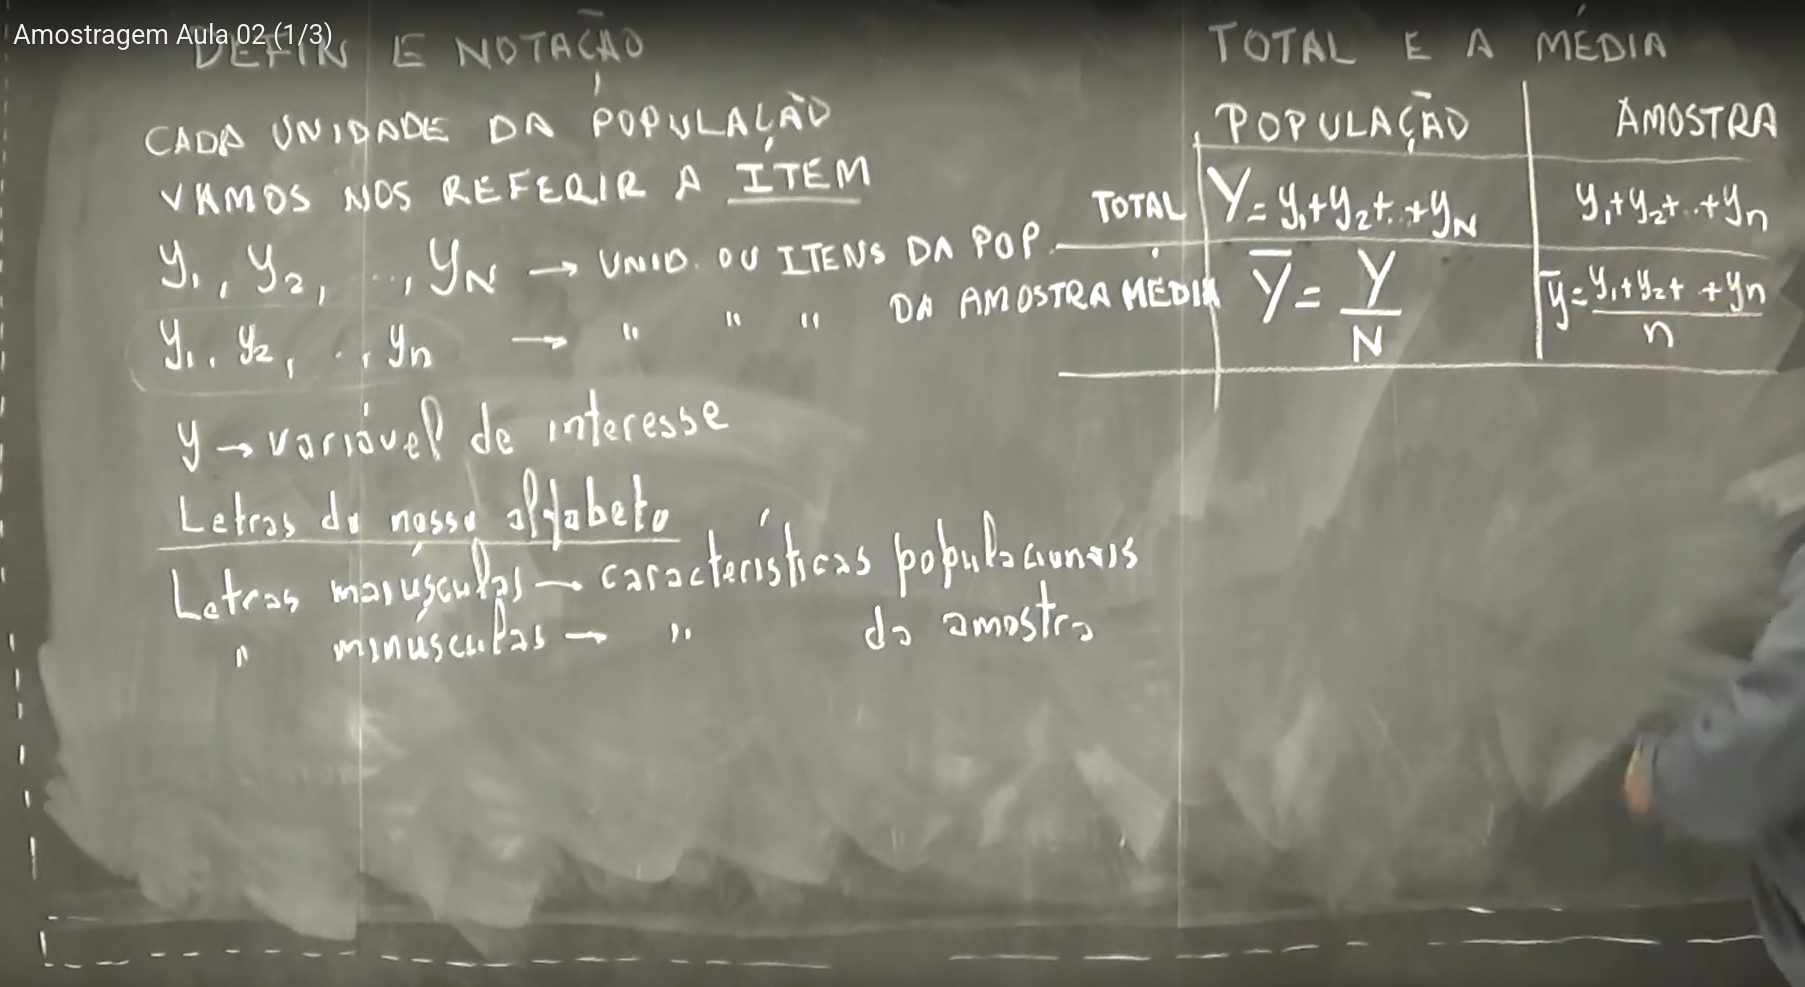 Amostragem Aula 02 (1/3)
DEFIN E NOTAÇÃO
CADA UNIDADE DA POPULAÇÃO
VAMOS NOS REFERIR A ÍTEM
y₁, y₂, ..., yN → UNID. OU ITENS DA POP.
y₁, y₂, .., yn → " " " DA AMOSTRA
y → variável de interesse
Letras do nosso alfabeto
Letras maiúsculas → características populacionais
" minúsculas → " da amostra
TOTAL E A MÉDIA
POPULAÇÃO AMOSTRA
TOTAL Y = y₁+y₂+..+yN y₁+y₂+..+yn
MÉDIA Y̅ = Y/N y̅ = y₁+y₂+ +yn/n